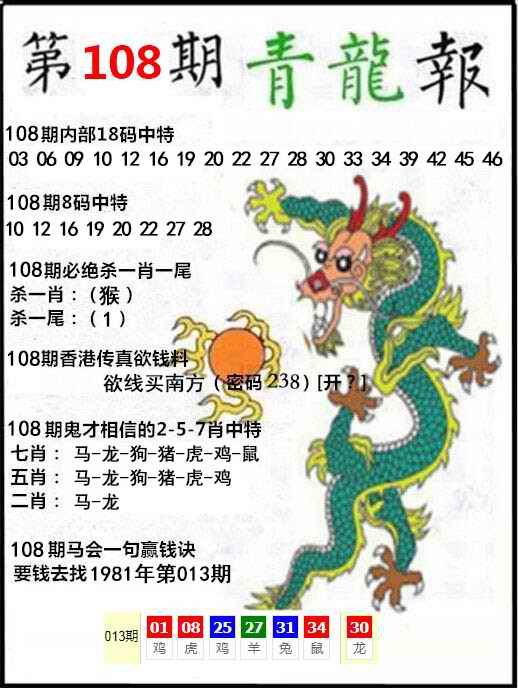 第108期青龍報
108期内部18码中特
03 06 09 10 12 16 19 20 22 27 28 30 33 34 39 42 45 46
108期8码中特
10 12 16 19 20 22 27 28
108期必绝杀一肖一尾
杀一肖：（猴）
杀一尾：（1）
108期香港传真欲钱料
欲线买南方（密码238）[开？]
108期鬼才相信的2-5-7肖中特
七肖： 马-龙-狗-猪-虎-鸡-鼠
五肖： 马-龙-狗-猪-虎-鸡
二肖： 马-龙
108期马会一句赢钱诀
要钱去找1981年第013期
013期 01 08 25 27 31 34 30
鸡 虎 鸡 羊 兔 鼠 龙